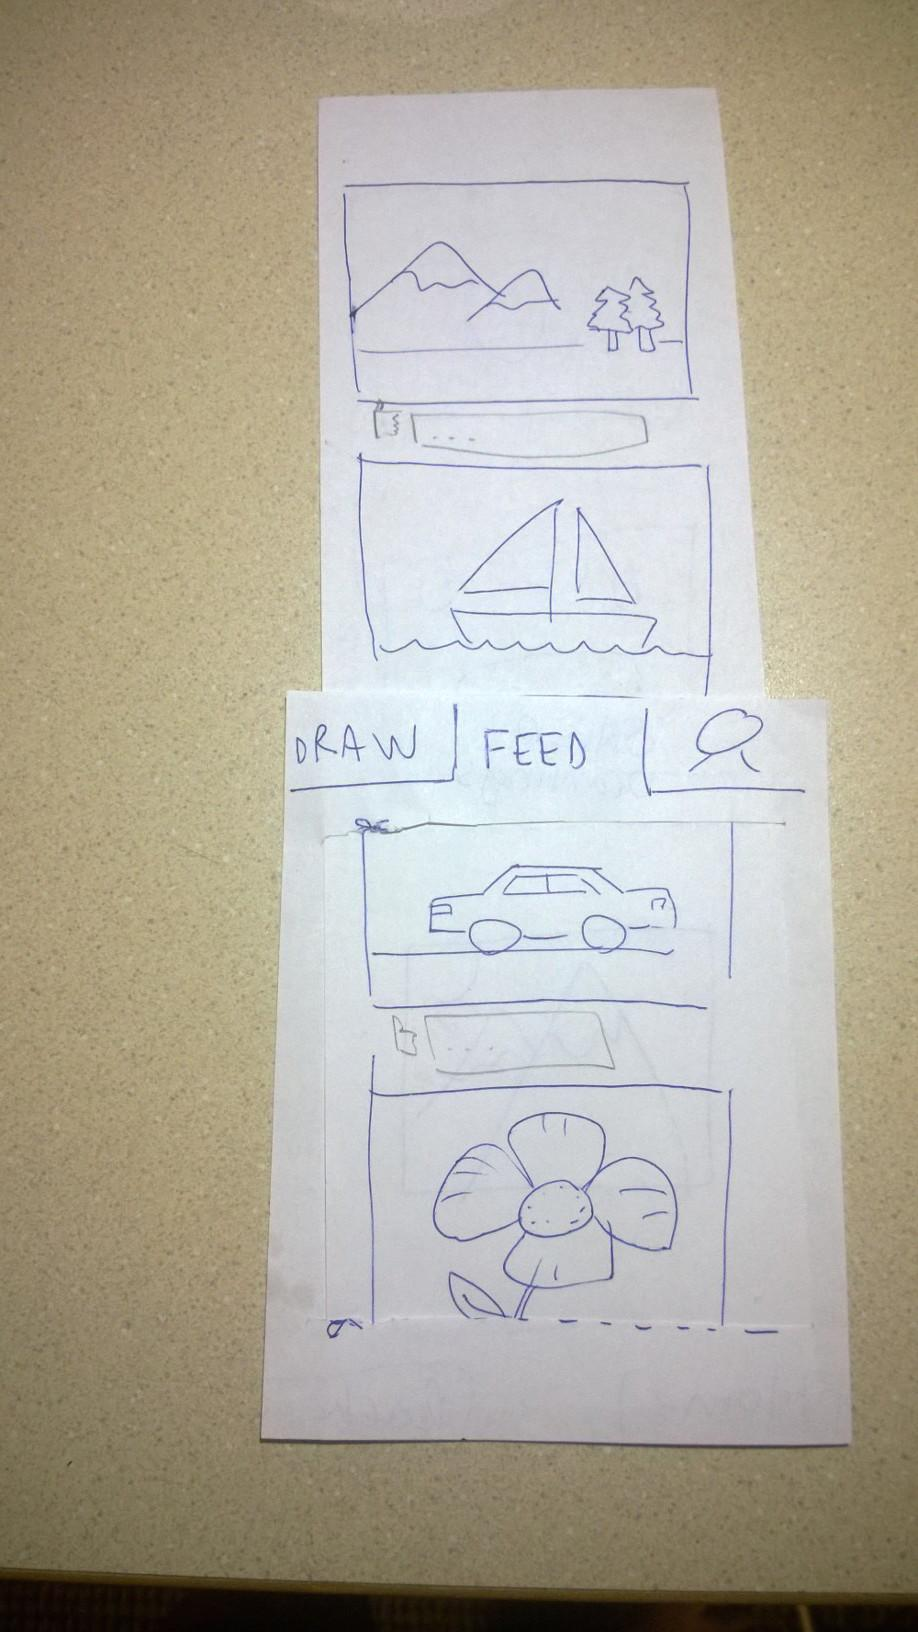 ...
DRAW FEED
...